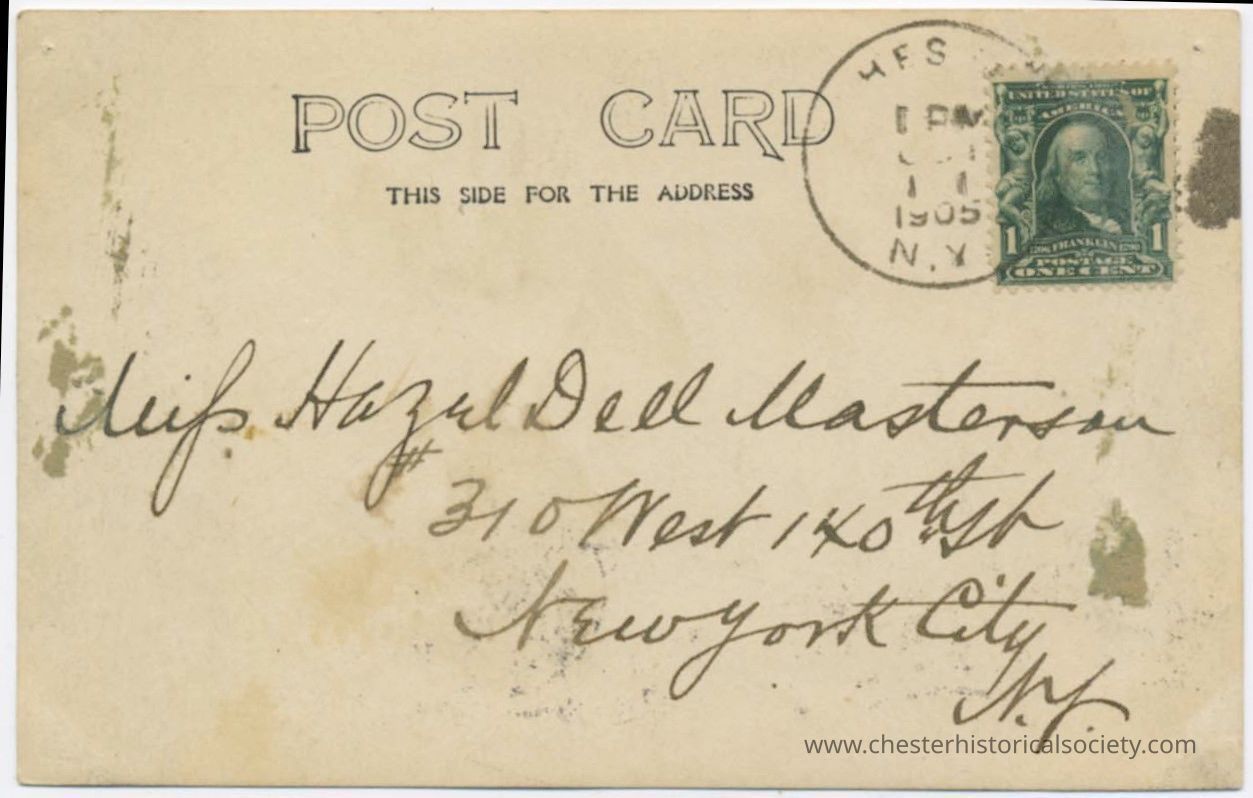 POST CARD
THIS SIDE FOR THE ADDRESS
HES
PM
1905
N.Y
UNITED STATES OF
AMERICA
1 FRANKLIN 1
POSTAGE
ONE CENT
Miss Hazel Dell Masterson
# 310 West 140th St
New York City
N.Y.
www.chesterhistoricalsociety.com